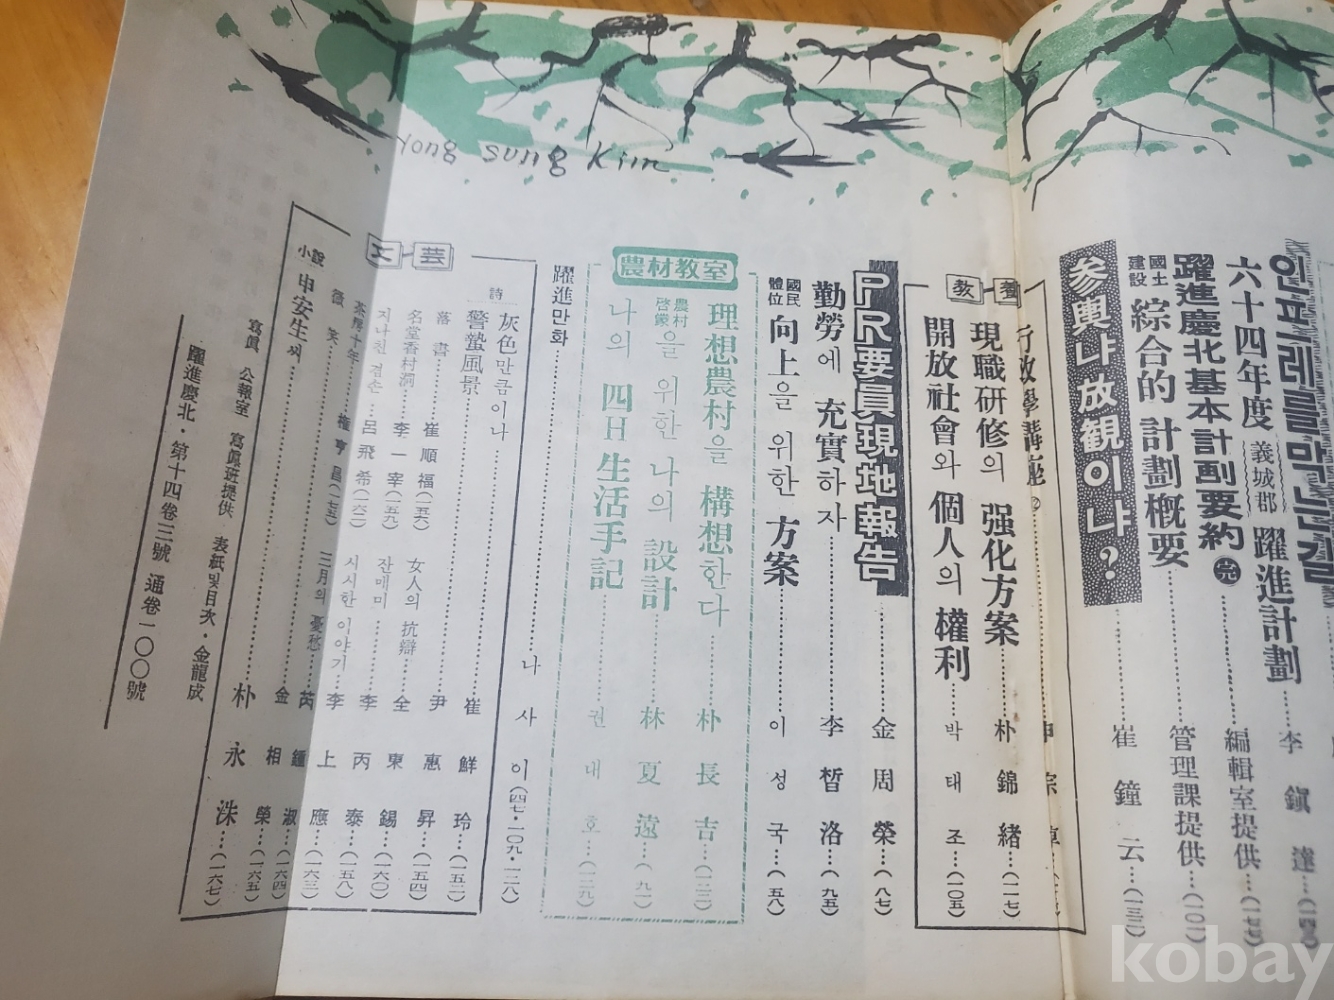 Yong Sung Kim
인프레를 막는 길
六十四年度 義城郡 躍進計劃……李鎭達……(一四〇)
躍進慶北基本計劃要約 完……編輯室提供…
國土建設 綜合的 計劃槪要……管理課提供…(一〇一)
参輿냐 放観이냐?……崔鐘云…(一三二)
敎養
行政學講座
現職研修의 强化方案……朴錦緖…(一一七)
開放社會와 個人의 權利……박태조…(一〇五)
PR要員現地報告……金周榮…(八七)
勤勞에 充實하자……李晳洛…(九五)
國民體位 向上을 위한 方案……이성국…(五八)
農村教室
理想農村을 構想한다……朴長吉…(一二三)
農村啓蒙을 위한 나의 設計……林夏遠…(九一)
나의 四H生活手記……권대호…(一二九)
躍進만화……나사이…(四七·一〇九·一二八)
文芸
詩
灰色만큼이나……崔鮮玲…(一五二)
警蟄風景……尹惠昇…(一五四)
落書……崔順福(一五六)
女人의 抗辯……全東錫…(一六〇)
名堂香村洞……李一宰(一五九)
잔매미……李丙泰…(一五八)
지나친 겸손……呂飛希(一六二)
시시한 이야기……李上應…(一六三)
茶房十年……權亨昌(一七五)
三月의 憂愁……芮鍾淑…(一六四)
微笑……金相榮…(一六五)
小說 申安生씨……朴永洙…(一六七)
寫眞 公報室 寫眞班提供 表紙및目次·金龍成
躍進慶北·第十四卷三號 通卷一〇〇號
kobay